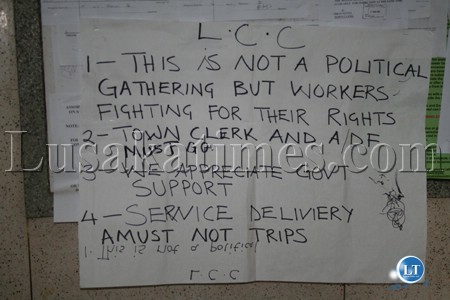 L.C.C
1- THIS IS NOT A POLITICAL
GATHERING BUT WORKERS
FIGHTING FOR THEIR RIGHTS
2- TOWN CLERK AND A/DF
MUST GO
3- WE APPRECIATE GOVT
SUPPORT
4- SERVICE DELIVIERY
AMUST NOT TRIPS
1. This is not a political
L.C.C
Lusakatimes.com
LT